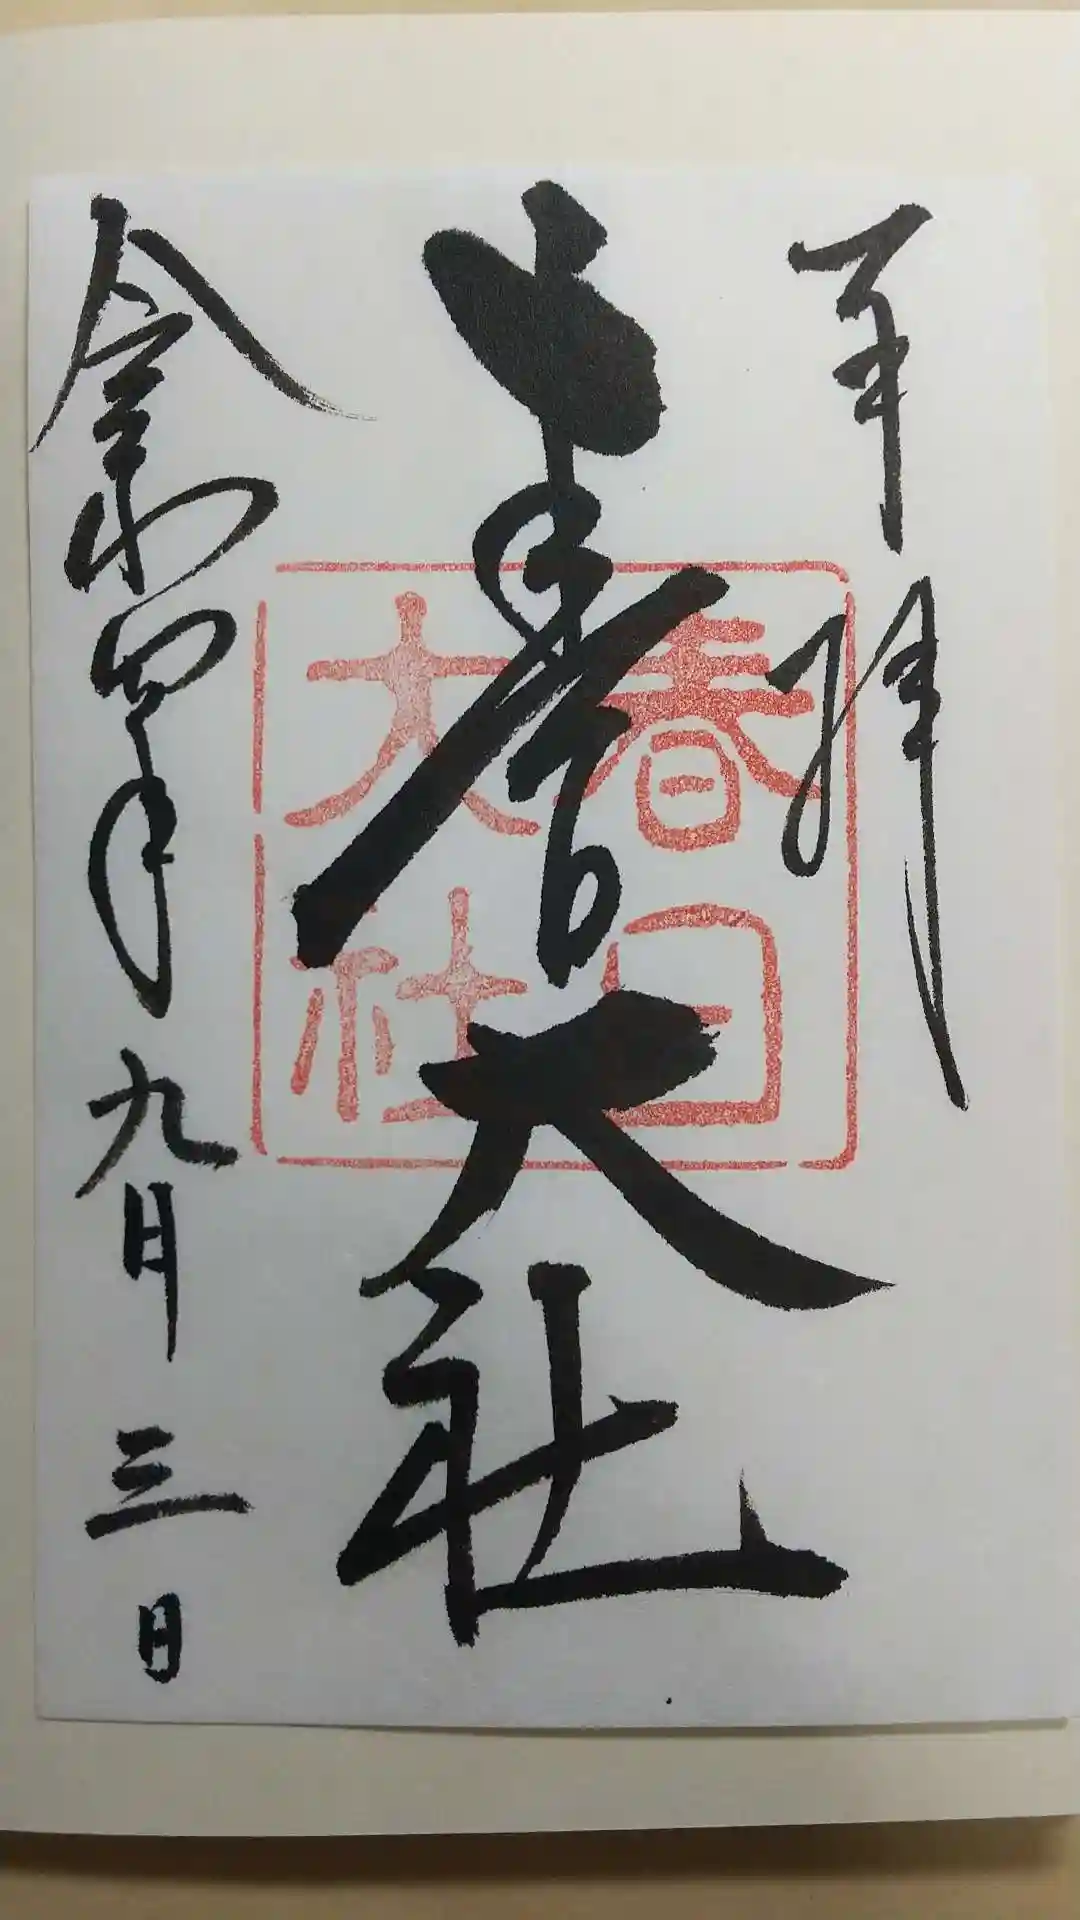 奉拝
春日大社
春日
大社
令和四年九月三日